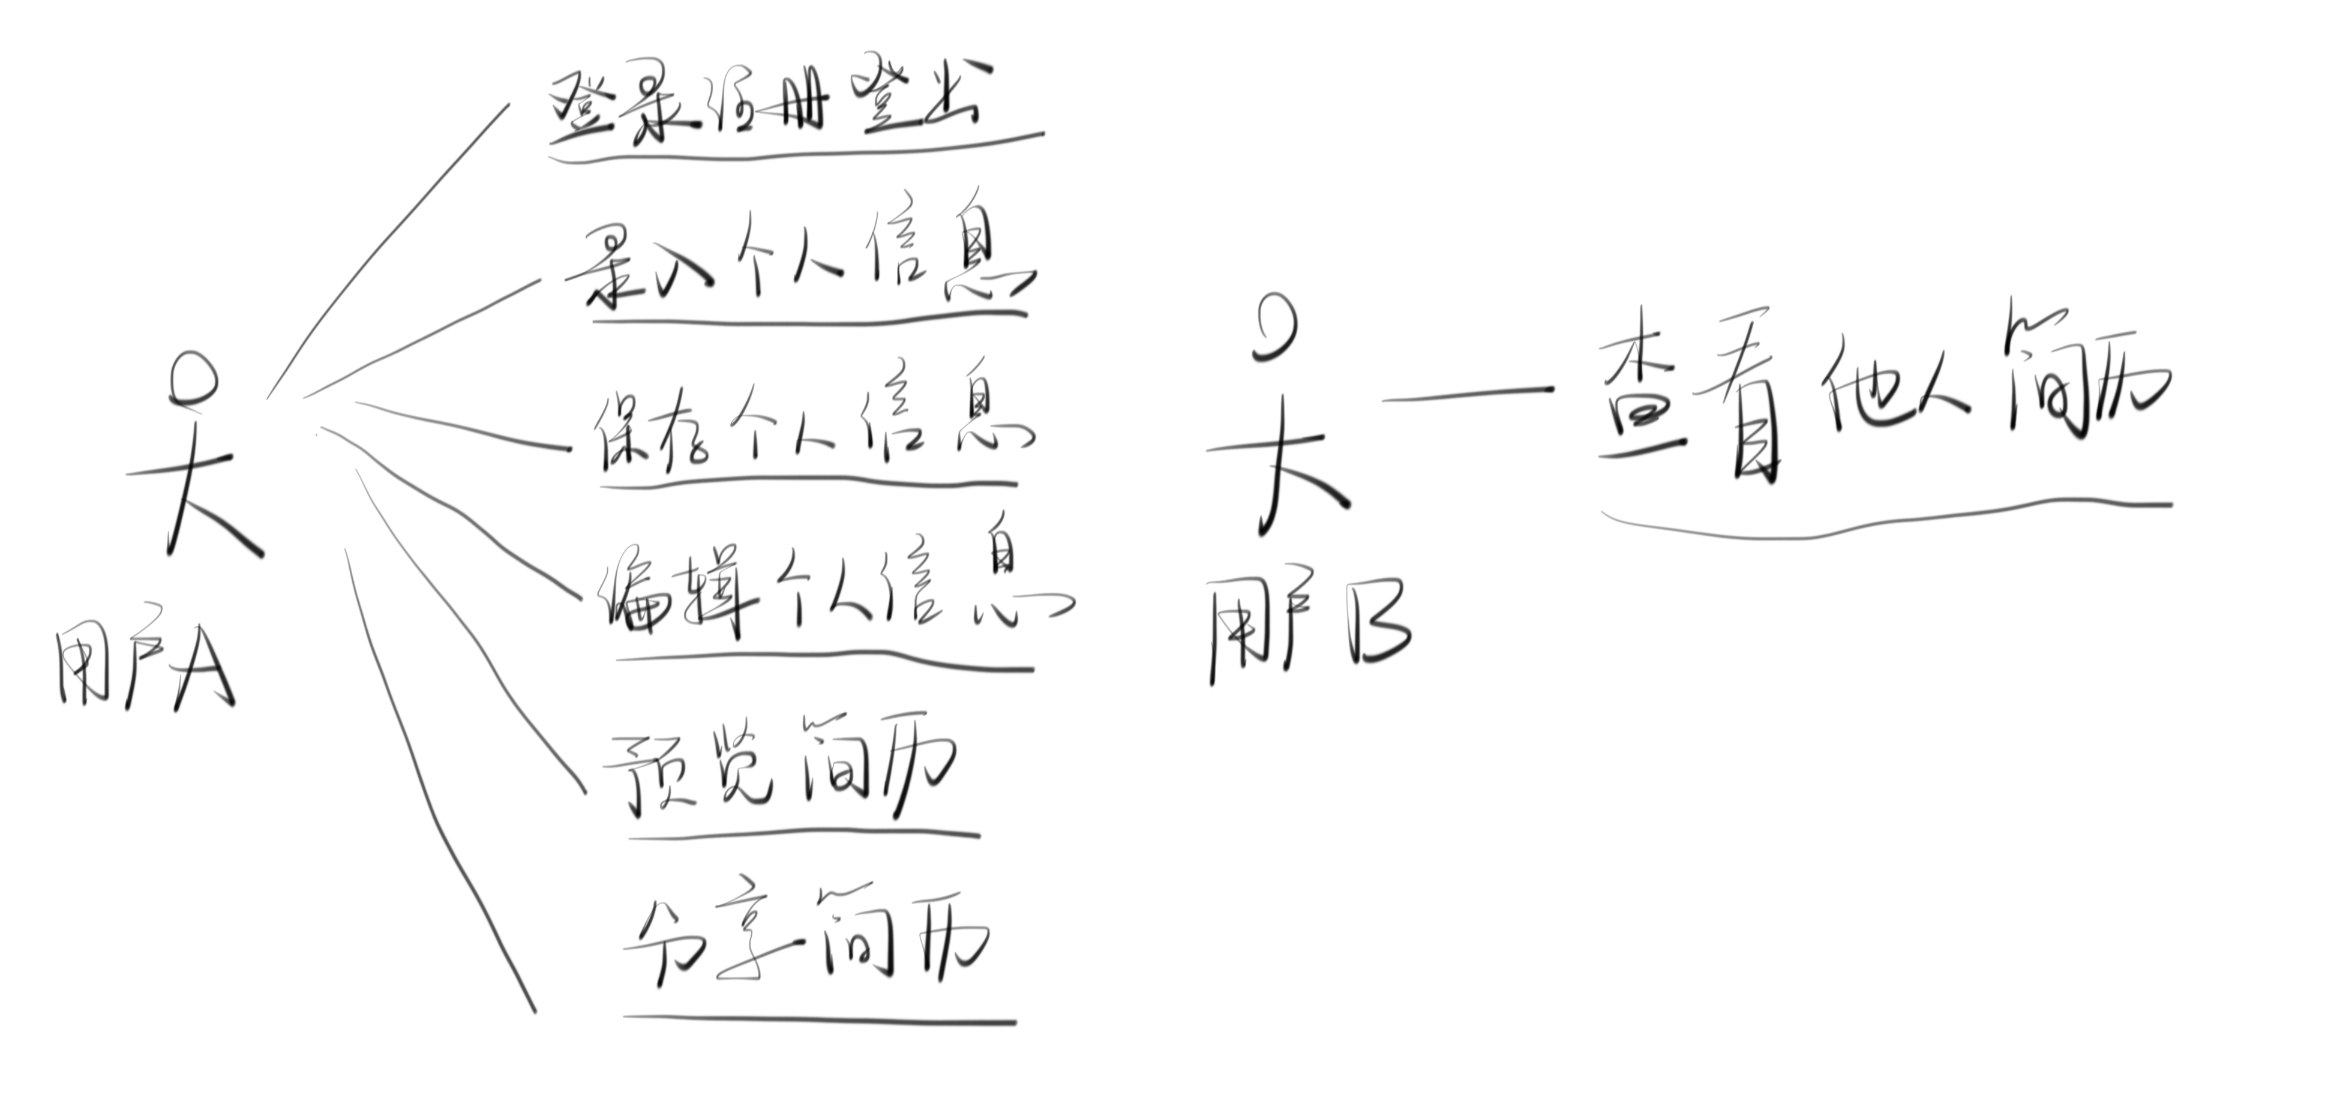 登录注册登出
录入个人信息
保存个人信息
编辑个人信息
预览简历
分享简历
用户A
查看他人简历
用户B